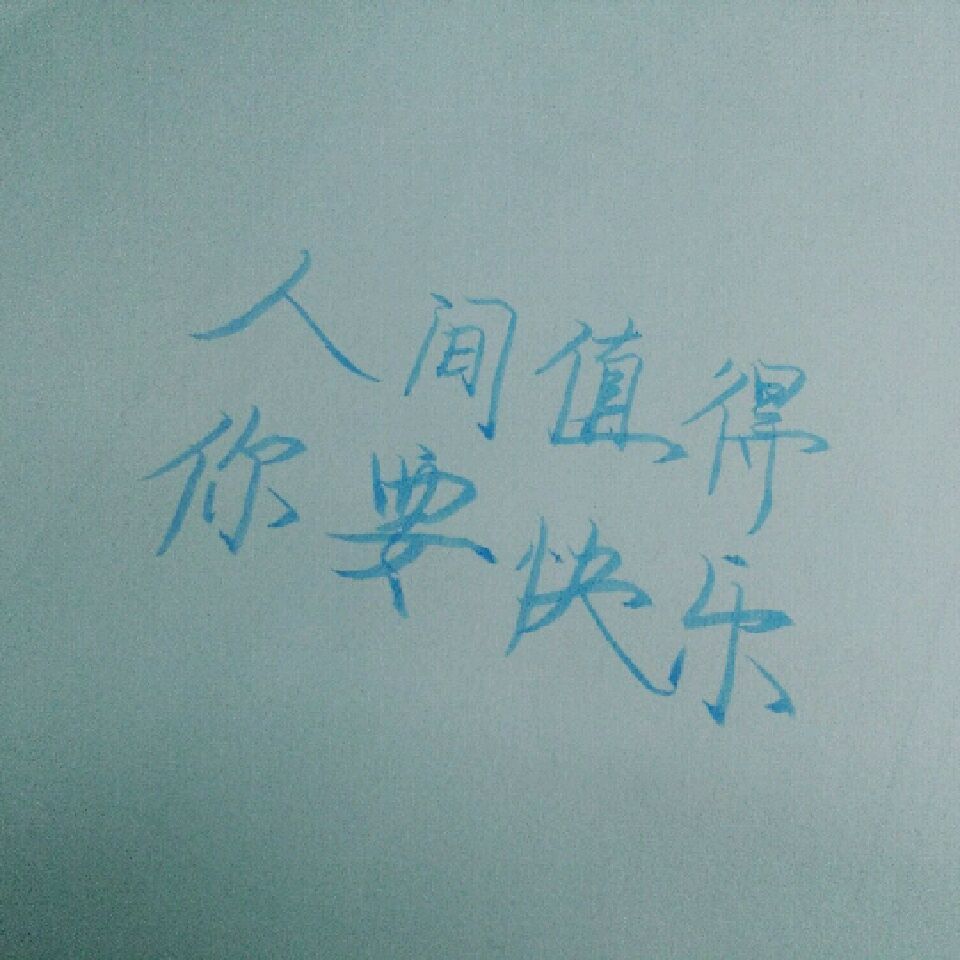 人间值得
你要快乐